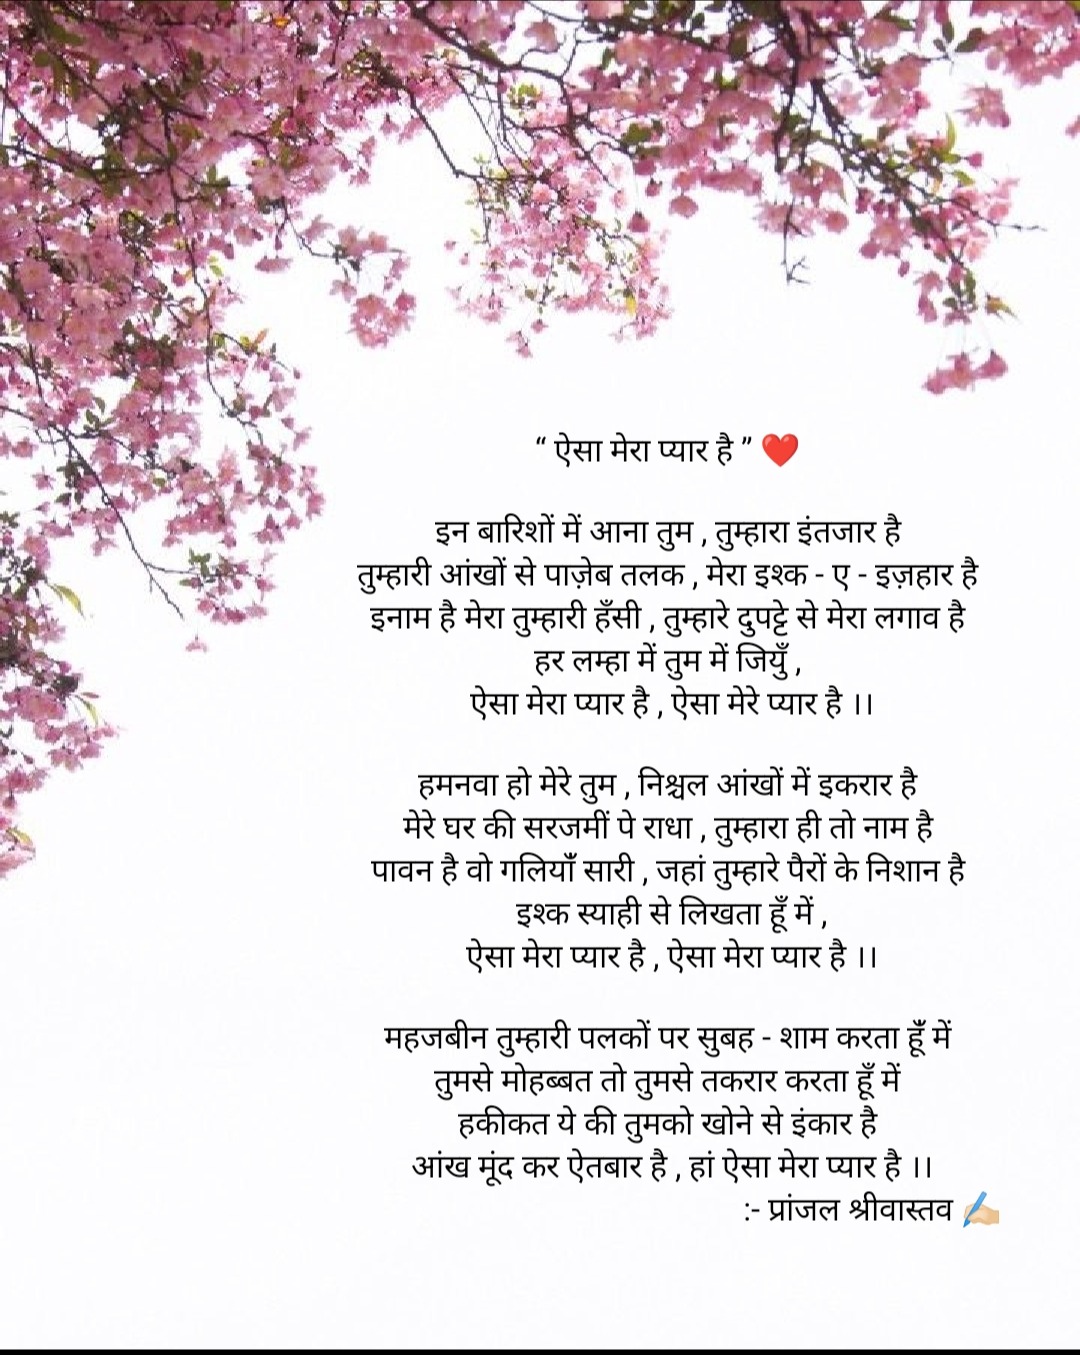 “ ऐसा मेरा प्यार है ” ❤️
इन बारिशों में आना तुम , तुम्हारा इंतजार है
तुम्हारी आंखों से पाज़ेब तलक , मेरा इश्क - ए - इज़हार है
इनाम है मेरा तुम्हारी हँसी , तुम्हारे दुपट्टे से मेरा लगाव है
हर लम्हा में तुम में जियुँ ,
ऐसा मेरा प्यार है , ऐसा मेरे प्यार है ।।
हमनवा हो मेरे तुम , निश्चल आंखों में इकरार है
मेरे घर की सरजमीं पे राधा , तुम्हारा ही तो नाम है
पावन है वो गलियाँ सारी , जहां तुम्हारे पैरों के निशान है
इश्क स्याही से लिखता हूँ में ,
ऐसा मेरा प्यार है , ऐसा मेरा प्यार है ।।
महजबीन तुम्हारी पलकों पर सुबह - शाम करता हूँ में
तुमसे मोहब्बत तो तुमसे तकरार करता हूँ में
हकीकत ये की तुमको खोने से इंकार है
आंख मूंद कर ऐतबार है , हां ऐसा मेरा प्यार है ।।
:- प्रांजल श्रीवास्तव ✍🏻